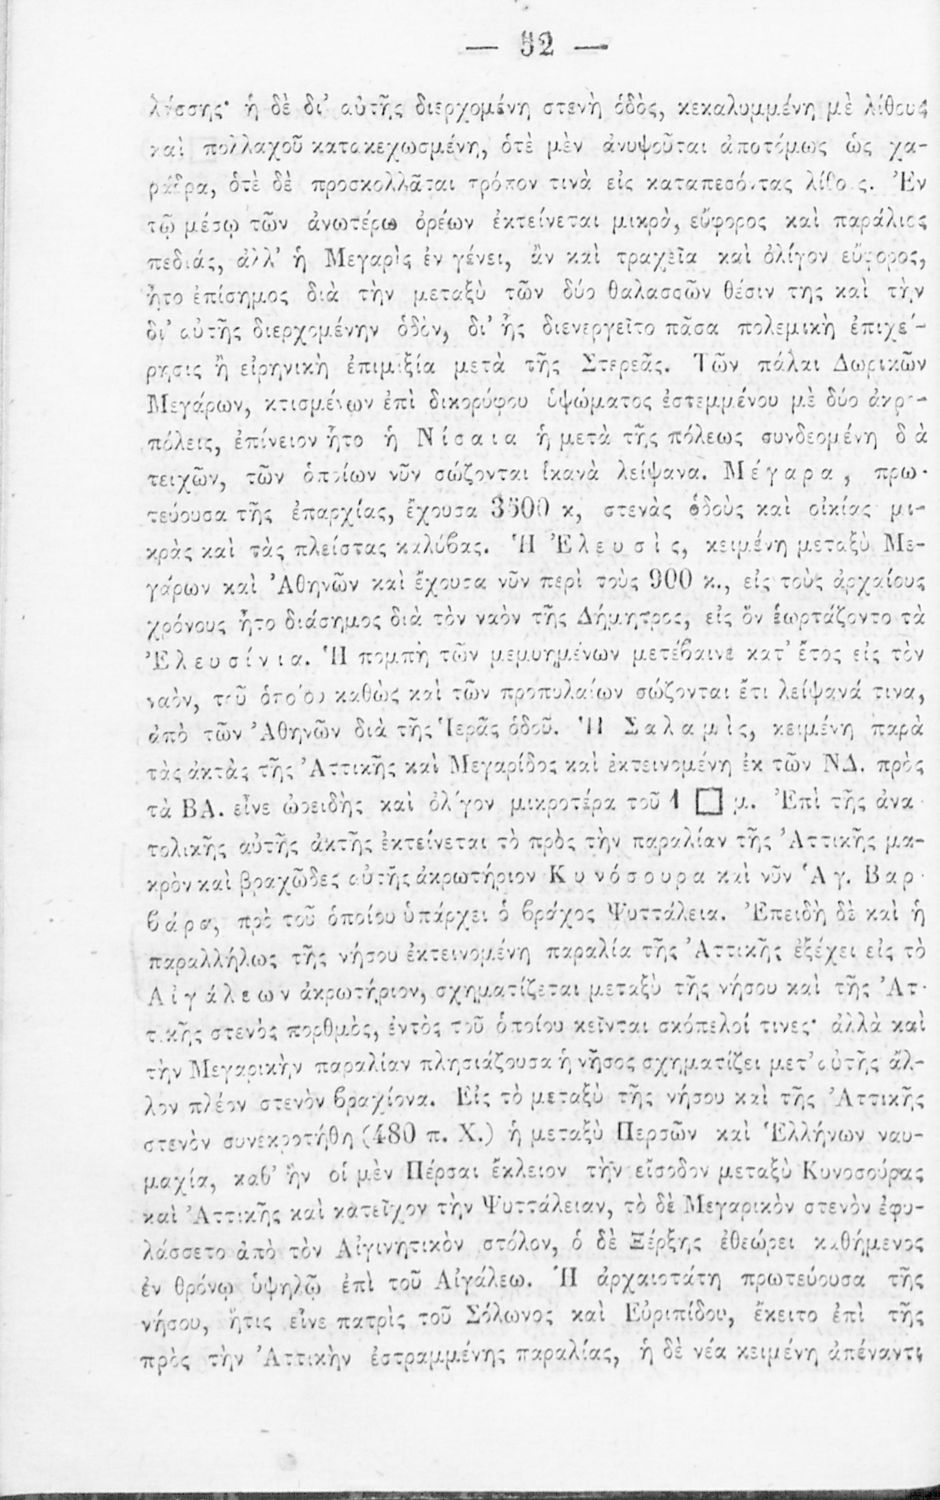 — 52 —
λάσσης· ἡ δὲ δι’ αὐτῆς διερχομένη στενὴ ὁδὸς, κεκαλυμμένη μὲ λίθους
καὶ πολλαχοῦ κατακεχωσμένη, ὁτὲ μὲν ἀνυψοῦται ἀποτόμως ὡς χα-
ράδρα, ὁτὲ δὲ προσκολλᾶται τρόπον τινὰ εἰς καταπεσόντας λίθους. Ἐν
τῷ μέσῳ τῶν ἀνωτέρω ὀρέων ἐκτείνεται μικρὰ, εὔφορος καὶ παράλιος
πεδιάς, ἀλλ’ ἡ Μεγαρὶς ἐν γένει, ἂν καὶ τραχεῖα καὶ ὀλίγον εὔφορος,
ἦτο ἐπίσημος διὰ τὴν μεταξὺ τῶν δύο θαλασσῶν θέσιν της καὶ τὴν
δι’ αὐτῆς διερχομένην ὁδὸν, δι’ ἧς διενεργεῖτο πᾶσα πολεμικὴ ἐπιχεί-
ρησις ἢ εἰρηνικὴ ἐπιμιξία μετὰ τῆς Στερεᾶς. Τῶν πάλαι Δωρικῶν
Μεγάρων, κτισμένων ἐπὶ δικορύφου ὑψώματος ἐστεμμένου μὲ δύο ἀκρο-
πόλεις, ἐπίνειον ἦτο ἡ Νίσαια ἡ μετὰ τῆς πόλεως συνδεομένη διὰ
τειχῶν, τῶν ὁποίων νῦν σώζονται ἱκανὰ λείψανα. Μέγαρα, πρω-
τεύουσα τῆς ἐπαρχίας, ἔχουσα 3500 κ, στενὰς ὁδοὺς καὶ οἰκίας μι-
κρὰς καὶ τὰς πλείστας καλύβας. Ἡ Ἐλευσὶς, κειμένη μεταξὺ Με-
γάρων καὶ Ἀθηνῶν καὶ ἔχουσα νῦν περὶ τοὺς 900 κ., εἰς τοὺς ἀρχαίους
χρόνους ἦτο διάσημος διὰ τὸν ναὸν τῆς Δήμητρος, εἰς ὃν ἑωρτάζοντο τὰ
Ἐλευσίνια. Ἡ πομπὴ τῶν μεμυημένων μετέβαινε κατ’ ἔτος εἰς τὸν
ναὸν, τοῦ ὁποίου καθὼς καὶ τῶν προπυλαίων σώζονται ἔτι λείψανά τινα,
ἀπὸ τῶν Ἀθηνῶν διὰ τῆς Ἱερᾶς ὁδοῦ. Ἡ Σαλαμὶς, κειμένη παρὰ
τὰς ἀκτὰς τῆς Ἀττικῆς καὶ Μεγαρίδος καὶ ἐκτεινομένη ἐκ τῶν ΝΔ. πρὸς
τὰ ΒΑ. εἶνε ὠοειδὴς καὶ ὀλίγον μικροτέρα τοῦ 1 □ μ. Ἐπὶ τῆς ἀνα-
τολικῆς αὐτῆς ἀκτῆς ἐκτείνεται τὸ πρὸς τὴν παραλίαν τῆς Ἀττικῆς μα-
κρὸν καὶ βραχῶδες αὐτῆς ἀκρωτήριον Κυνόσουρα καὶ νῦν Ἁγ. Βαρ-
βάρα, πρὸ τοῦ ὁποίου ὑπάρχει ὁ βράχος Ψυττάλεια. Ἐπειδὴ δὲ καὶ ἡ
παραλλήλως τῆς νήσου ἐκτεινομένη παραλία τῆς Ἀττικῆς ἐξέχει εἰς τὸ
Αἰγάλεων ἀκρωτήριον, σχηματίζεται μεταξὺ τῆς νήσου καὶ τῆς Ἀτ-
τικῆς στενὸς πορθμὸς, ἐντὸς τοῦ ὁποίου κεῖνται σκόπελοί τινες· ἀλλὰ καὶ
τὴν Μεγαρικὴν παραλίαν πλησιάζουσα ἡ νῆσος σχηματίζει μετ’ αὐτῆς ἄλ-
λον πλέον στενὸν βραχίονα. Εἰς τὸ μεταξὺ τῆς νήσου καὶ τῆς Ἀττικῆς
στενὸν συνεκροτήθη (480 π. Χ.) ἡ μεταξὺ Περσῶν καὶ Ἑλλήνων ναυ-
μαχία, καθ’ ἣν οἱ μὲν Πέρσαι ἔκλειον τὴν εἴσοδον μεταξὺ Κυνοσούρας
καὶ Ἀττικῆς καὶ κατεῖχον τὴν Ψυττάλειαν, τὸ δὲ Μεγαρικὸν στενὸν ἐφυ-
λάσσετο ἀπὸ τὸν Αἰγινητικὸν στόλον, ὁ δὲ Ξέρξης ἐθεώρει καθήμενος
ἐν θρόνῳ ὑψηλῷ ἐπὶ τοῦ Αἰγάλεω. Ἡ ἀρχαιοτάτη πρωτεύουσα τῆς
νήσου, ἥτις εἶνε πατρὶς τοῦ Σόλωνος καὶ Εὐριπίδου, ἔκειτο ἐπὶ τῆς
πρὸς τὴν Ἀττικὴν ἐστραμμένης παραλίας, ἡ δὲ νέα κειμένη ἀπέναντι